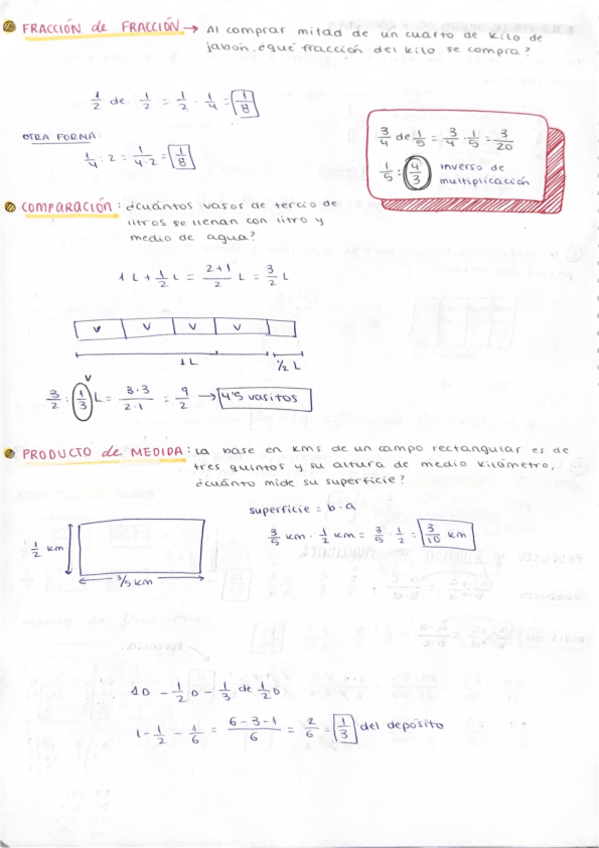 FRACCIÓN de FRACCIÓN → Al comprar mitad de un cuarto de kilo de
jabón, ¿qué fracción del kilo se compra?
1/2 de 1/2 = 1/2 · 1/4 = 1/8
OTRA FORMA:
1/4 : 2 = 1/4·2 = 1/8
3/4 de 1/5 = 3/4 · 1/5 = 3/20
1/5 : 4/3 inverso de
multiplicación
COMPARACIÓN: ¿cuántos vasos de tercio de
litros se llenan con litro y
medio de agua?
1 L + 1/2 L = 2+1/2 L = 3/2 L
V V V V
1L 1/2 L
V
3/2 : 1/3 L = 3·3/2·1 = 9/2 → 4'5 vasitos
PRODUCTO de MEDIDA: La base en kms de un campo rectangular es de
tres quintos y su altura de medio kilómetro,
¿cuánto mide su superficie?
superficie = b·a
3/5 km · 1/2 km = 3/5 · 1/2 = 3/10 km
1/2 km
3/5 km
1D - 1/2 D - 1/3 de 1/2 D
1 - 1/2 - 1/6 = 6-3-1/6 = 2/6 = 1/3 del depósito